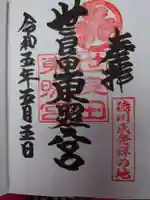 奉拝
徳川氏発祥の地
世良田東照宮
令和五年五月三日